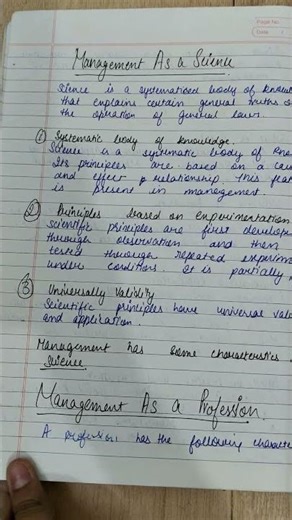 Page No.
Date
Management As a Science
Science is a systematised body of
that explains certain general truths
the operation of general laws.
① Systematic body of knowledge.
Science is a systematic body of
Its principles are based on a
and effect relationship this
is present in management.
② Principles based on experimentation
Scientific principles are first
through observation and then
tested through repeated
under conditions It is partially
③ Universally Validity
Scientific principles have universal
and application.
Management has some characteristics
Science
Management As a Profession.
A profession has the following